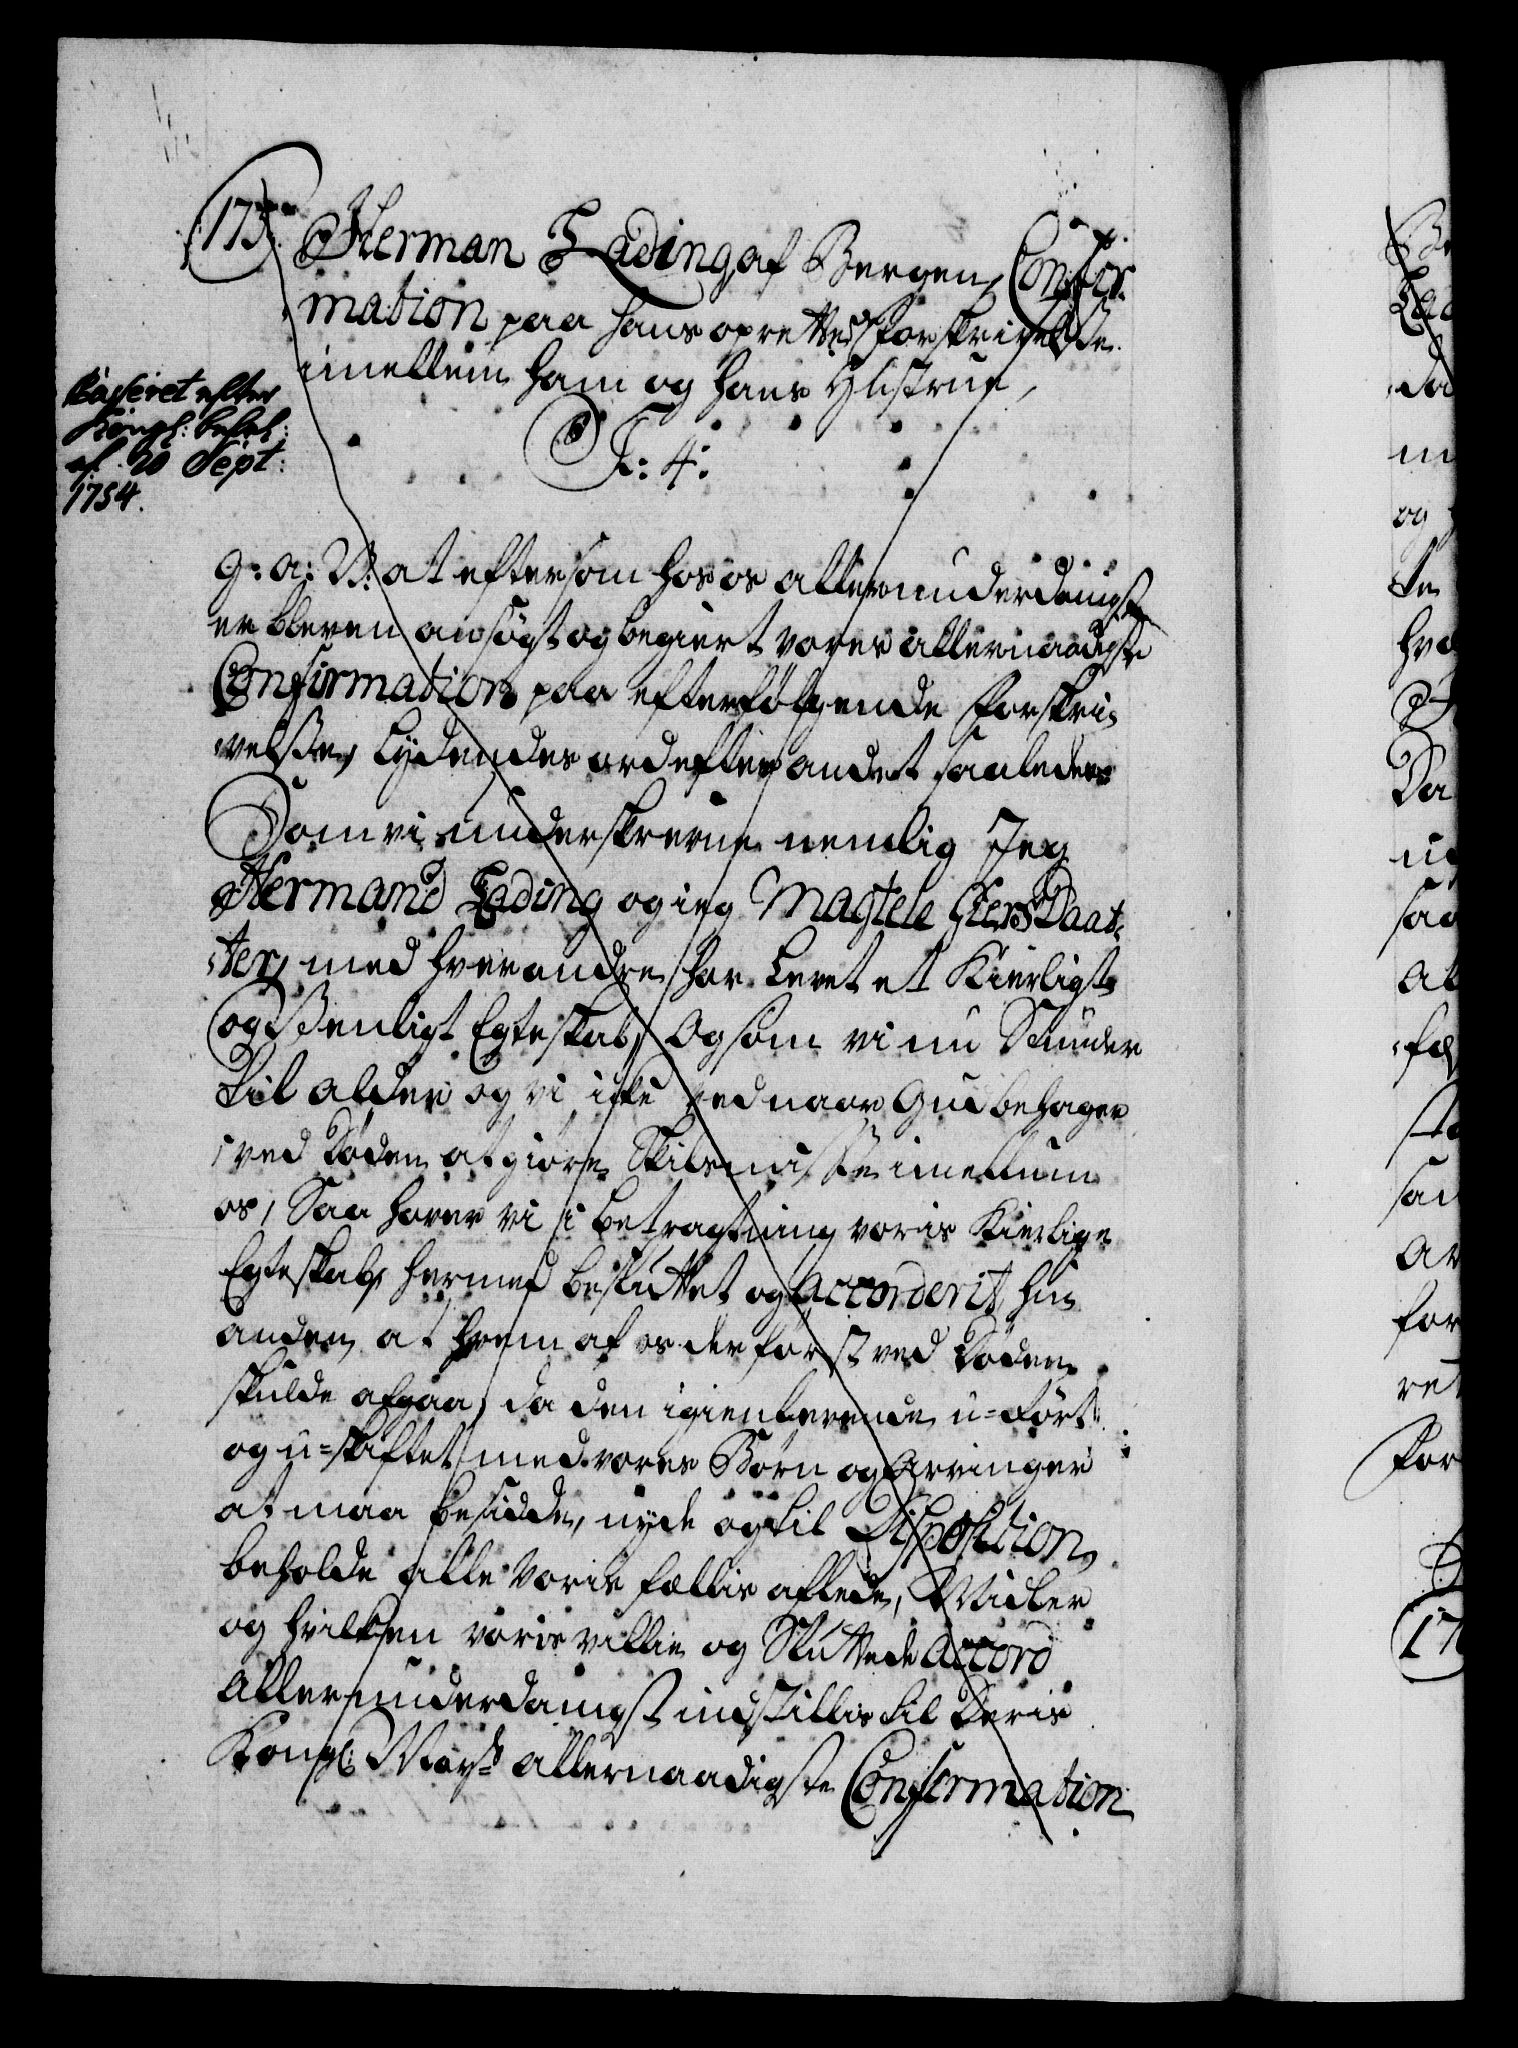 175. Herman Lading af Bergen Confir-
mation paa hans oprettede Forskrivelse
imellem ham og hans Hustrue,
Casseret efter
Kongl: befal:
af 20 Sept:
1754.
F: 4:
G: a: V: at eftersom hos os allerunderdanigst
er bleven ansøgt og begiert vores allernaadigste
Confirmation paa efterfølgende Forskri-
velse, Lydendes ord efter andet saaledes
Som vi underskrevne nemlig Jeg
Hermand Lading og ieg Magtele Giers Daat-
ter, med hverandre har Levet et Kierligt
og Venligt Egteskab, Og som vi nu Stunder
til alder og vi icke ved naar Gud behager
ved Døden at giøre Skilsmisse imellum
os, Saa haver vi i betragtning voris Kierlige
Egteskab, hermed besluttet og Accorderit hin
anden, at hvem af os der først ved Døden
skulde afgaa, da den igienlevende u-kiørt
og u-skiftet med vores Børn og Arvinger
at maa besidde, nyde og til Disposition
beholde alle voris fællis aflede, Midler
og hvilken voris villie og Sluttede Accord
Allerunderdanigst indstillis til Deris
Kongl: Mays allernaadigste Confirmation